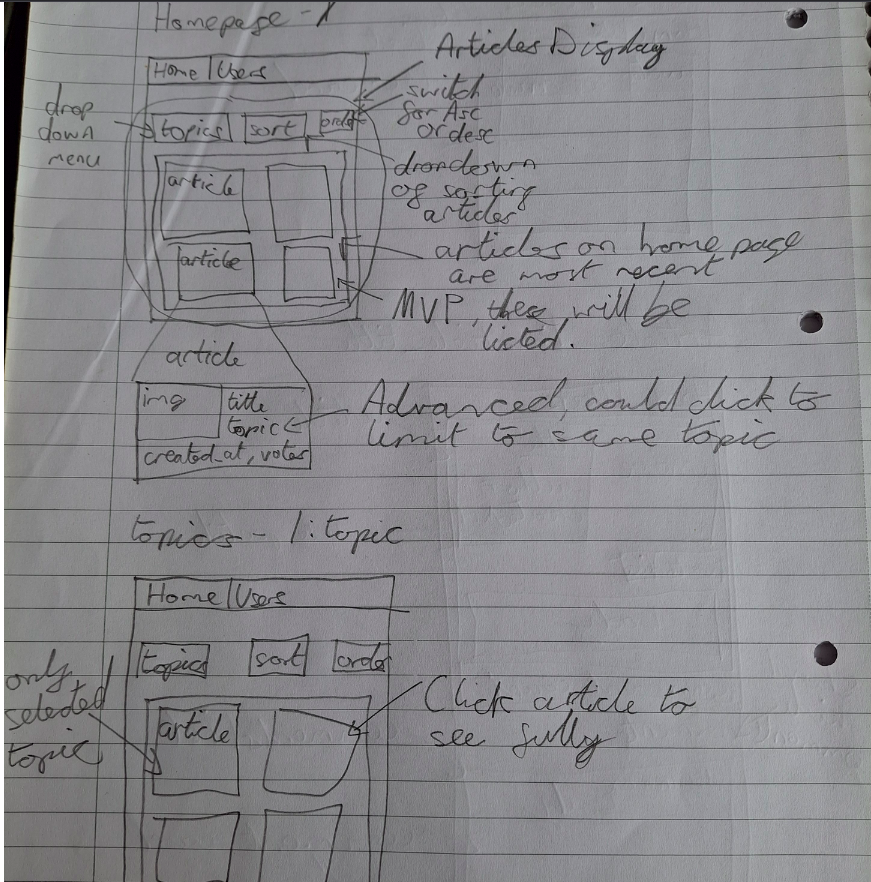 Homepage - /
Articles Display
Home | Users
switch
for Asc
or desc
drop
down
menu
topics
sort
order
dropdown
of sorting
articles
article
articles on home page
are most recent
article
MVP, these will be
listed.
article
img
title
topic
created_at, votes
Advanced, could click to
limit to same topic
topics - /:topic
Home | Users
topics
sort
order
only
selected
topic
article
Click article to
see fully